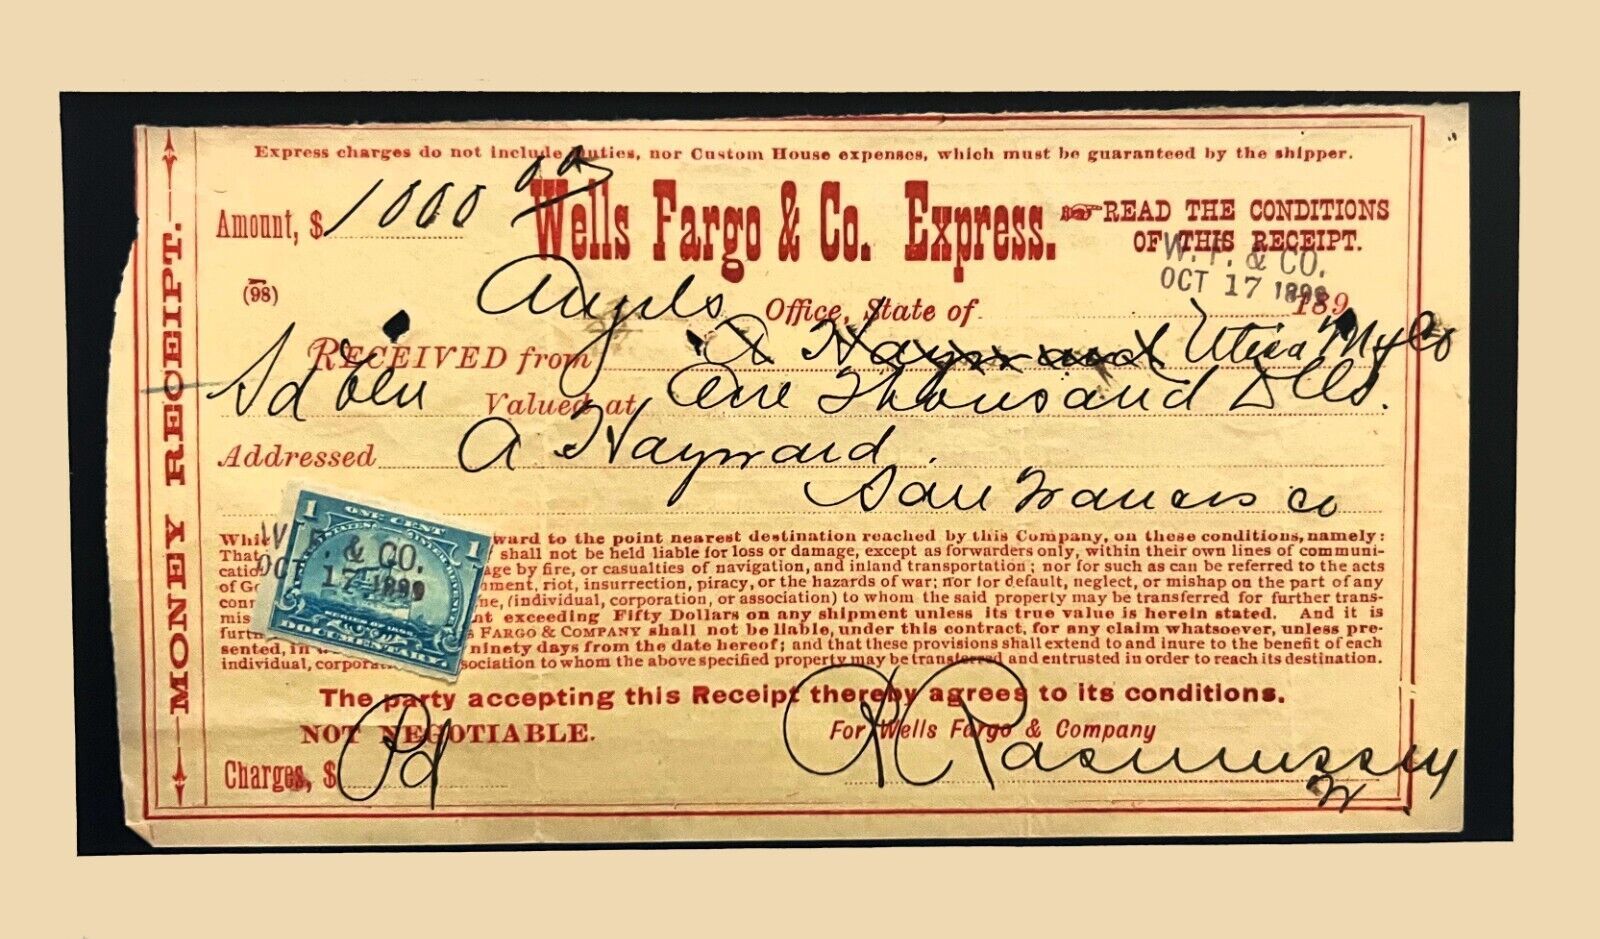 Express charges do not include duties, nor Custom House expenses, which must be guaranteed by the shipper.
MONEY RECEIPT.
Amount, $ 1000 00
Wells Fargo & Co. Express.
READ THE CONDITIONS
OF THIS RECEIPT.
W. F. & CO.
OCT 17 1899
(98)
Angels Office, State of 189
RECEIVED from A Hayward Utica Mg Co
Sd Valued at One Thousand Dlls.
Addressed A Hayward
San Francisco
Whi ward to the point nearest destination reached by this Company, on these conditions, namely:
That shall not be held liable for loss or damage, except as forwarders only, within their own lines of communi-
cation age by fire, or casualties of navigation, and inland transportation; nor for such as can be referred to the acts
of G nment, riot, insurrection, piracy, or the hazards of war; nor for default, neglect, or mishap on the part of any
conn ne, (individual, corporation, or association) to whom the said property may be transferred for further trans-
mis nt exceeding Fifty Dollars on any shipment unless its true value is herein stated. And it is
furth S FARGO & COMPANY shall not be liable, under this contract, for any claim whatsoever, unless pre-
sented, in ninety days from the date hereof; and that these provisions shall extend to and inure to the benefit of each
individual, corporat sociation to whom the above specified property may be transferred and entrusted in order to reach its destination.
1 ONE CENT 1
W. F. & CO.
OCT 17 1899
DOCUMENTARY.
The party accepting this Receipt thereby agrees to its conditions.
NOT NEGOTIABLE.
For Wells Fargo & Company
Charges, $ Pd
Rasmussen